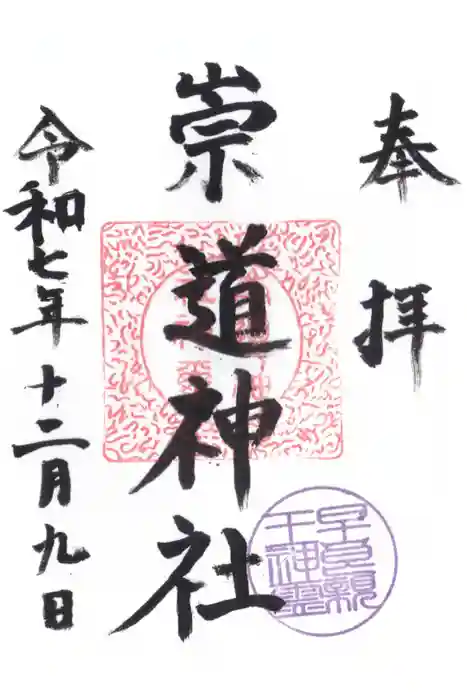 奉拝
崇道神社
令和七年十二月九日
早良親
王神霊